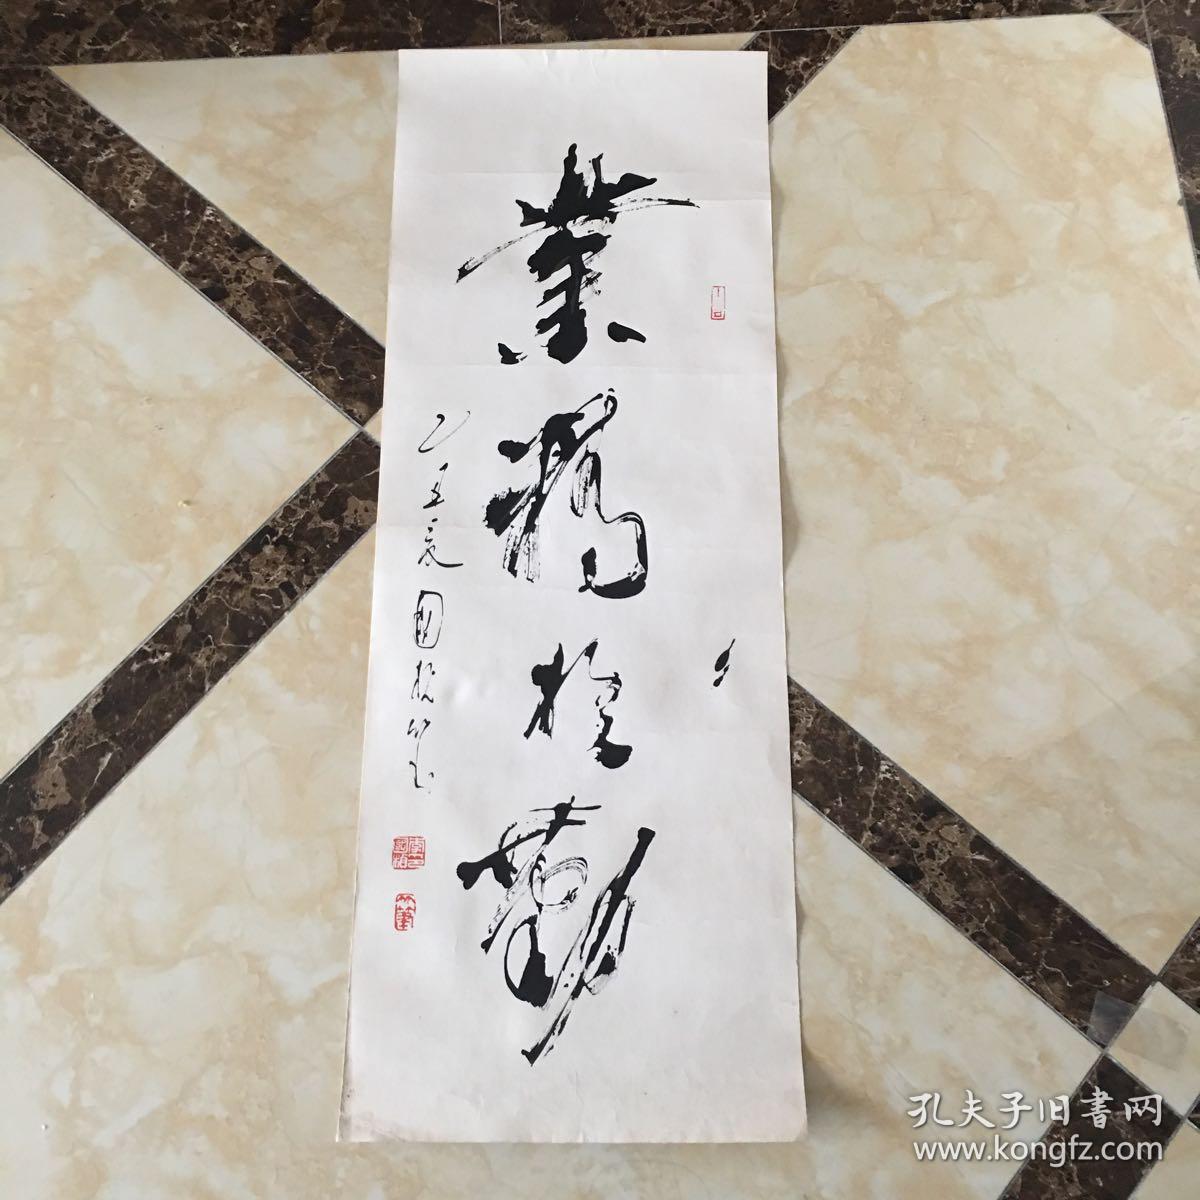 業精於勤
乙丑夏國楨
孔夫子旧書网
www.kongfz.com